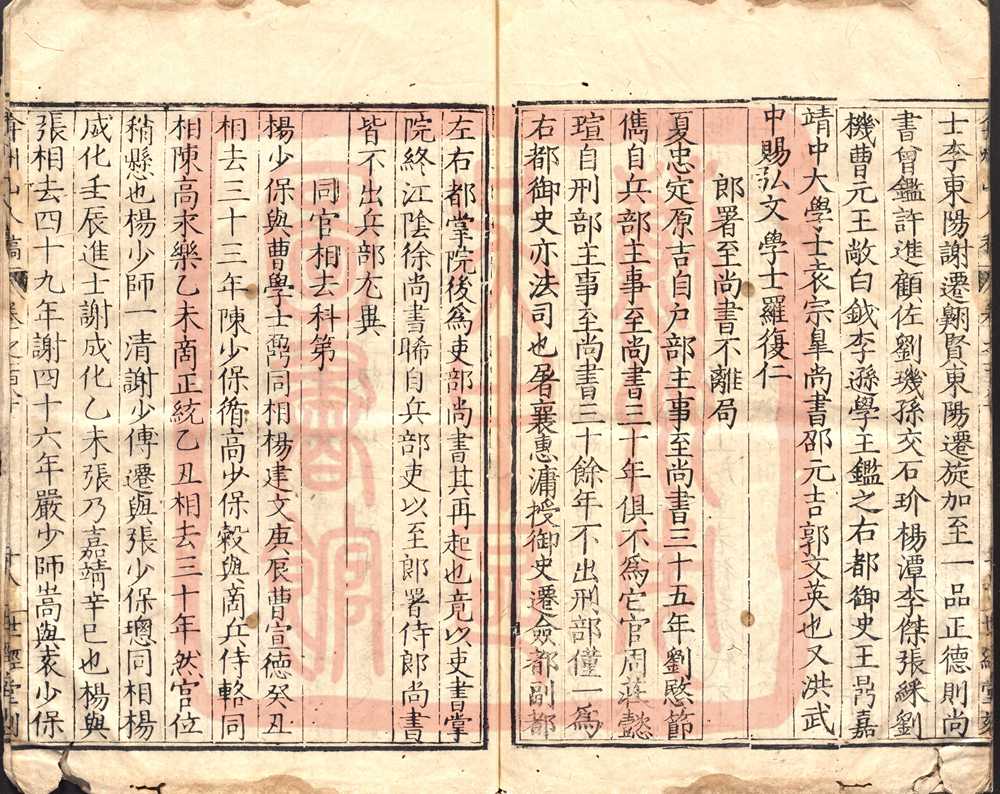 士李東陽謝遷翺賢東陽遷旋加至一品正德則尚
書曾鑑許進顧佐劉璣孫交石玠楊潭李傑張綵劉
機曹元王敞白鉞李遜學王鑑之右都御史王鼎嘉
靖中大學士袁宗臯尚書邵元吉郭文英也又洪武
中賜弘文學士羅復仁
郎署至尚書不離局
夏忠定原吉自户部主事至尚書三十五年劉愍節
儁自兵部主事至尚書三十年俱不爲它官周莊懿
瑄自刑部主事至尚書三十餘年不出刑部僅一爲
右都御史亦法司也屠襄惠滽授御史遷僉都副都
左右都掌院後爲吏部尚書其再起也竟以吏書掌
院終江陰徐尚書晞自兵部吏以至郎署侍郎尚書
皆不出兵部尢異
同官相去科第
楊少保與曹學士鼐同相楊建文庚辰曹宣德癸丑
相去三十三年陳少保循高少保穀與商兵侍輅同
相陳高永樂乙未商正統乙丑相去三十年然官位
稍懸也楊少師一清謝少傅遷與張少保璁同相楊
成化壬辰進士謝成化乙未張乃嘉靖辛巳也楊與
張相去四十九年謝四十六年嚴少師嵩與袁少保
弇州山人稿
卷之百六十
十八
世經堂刻